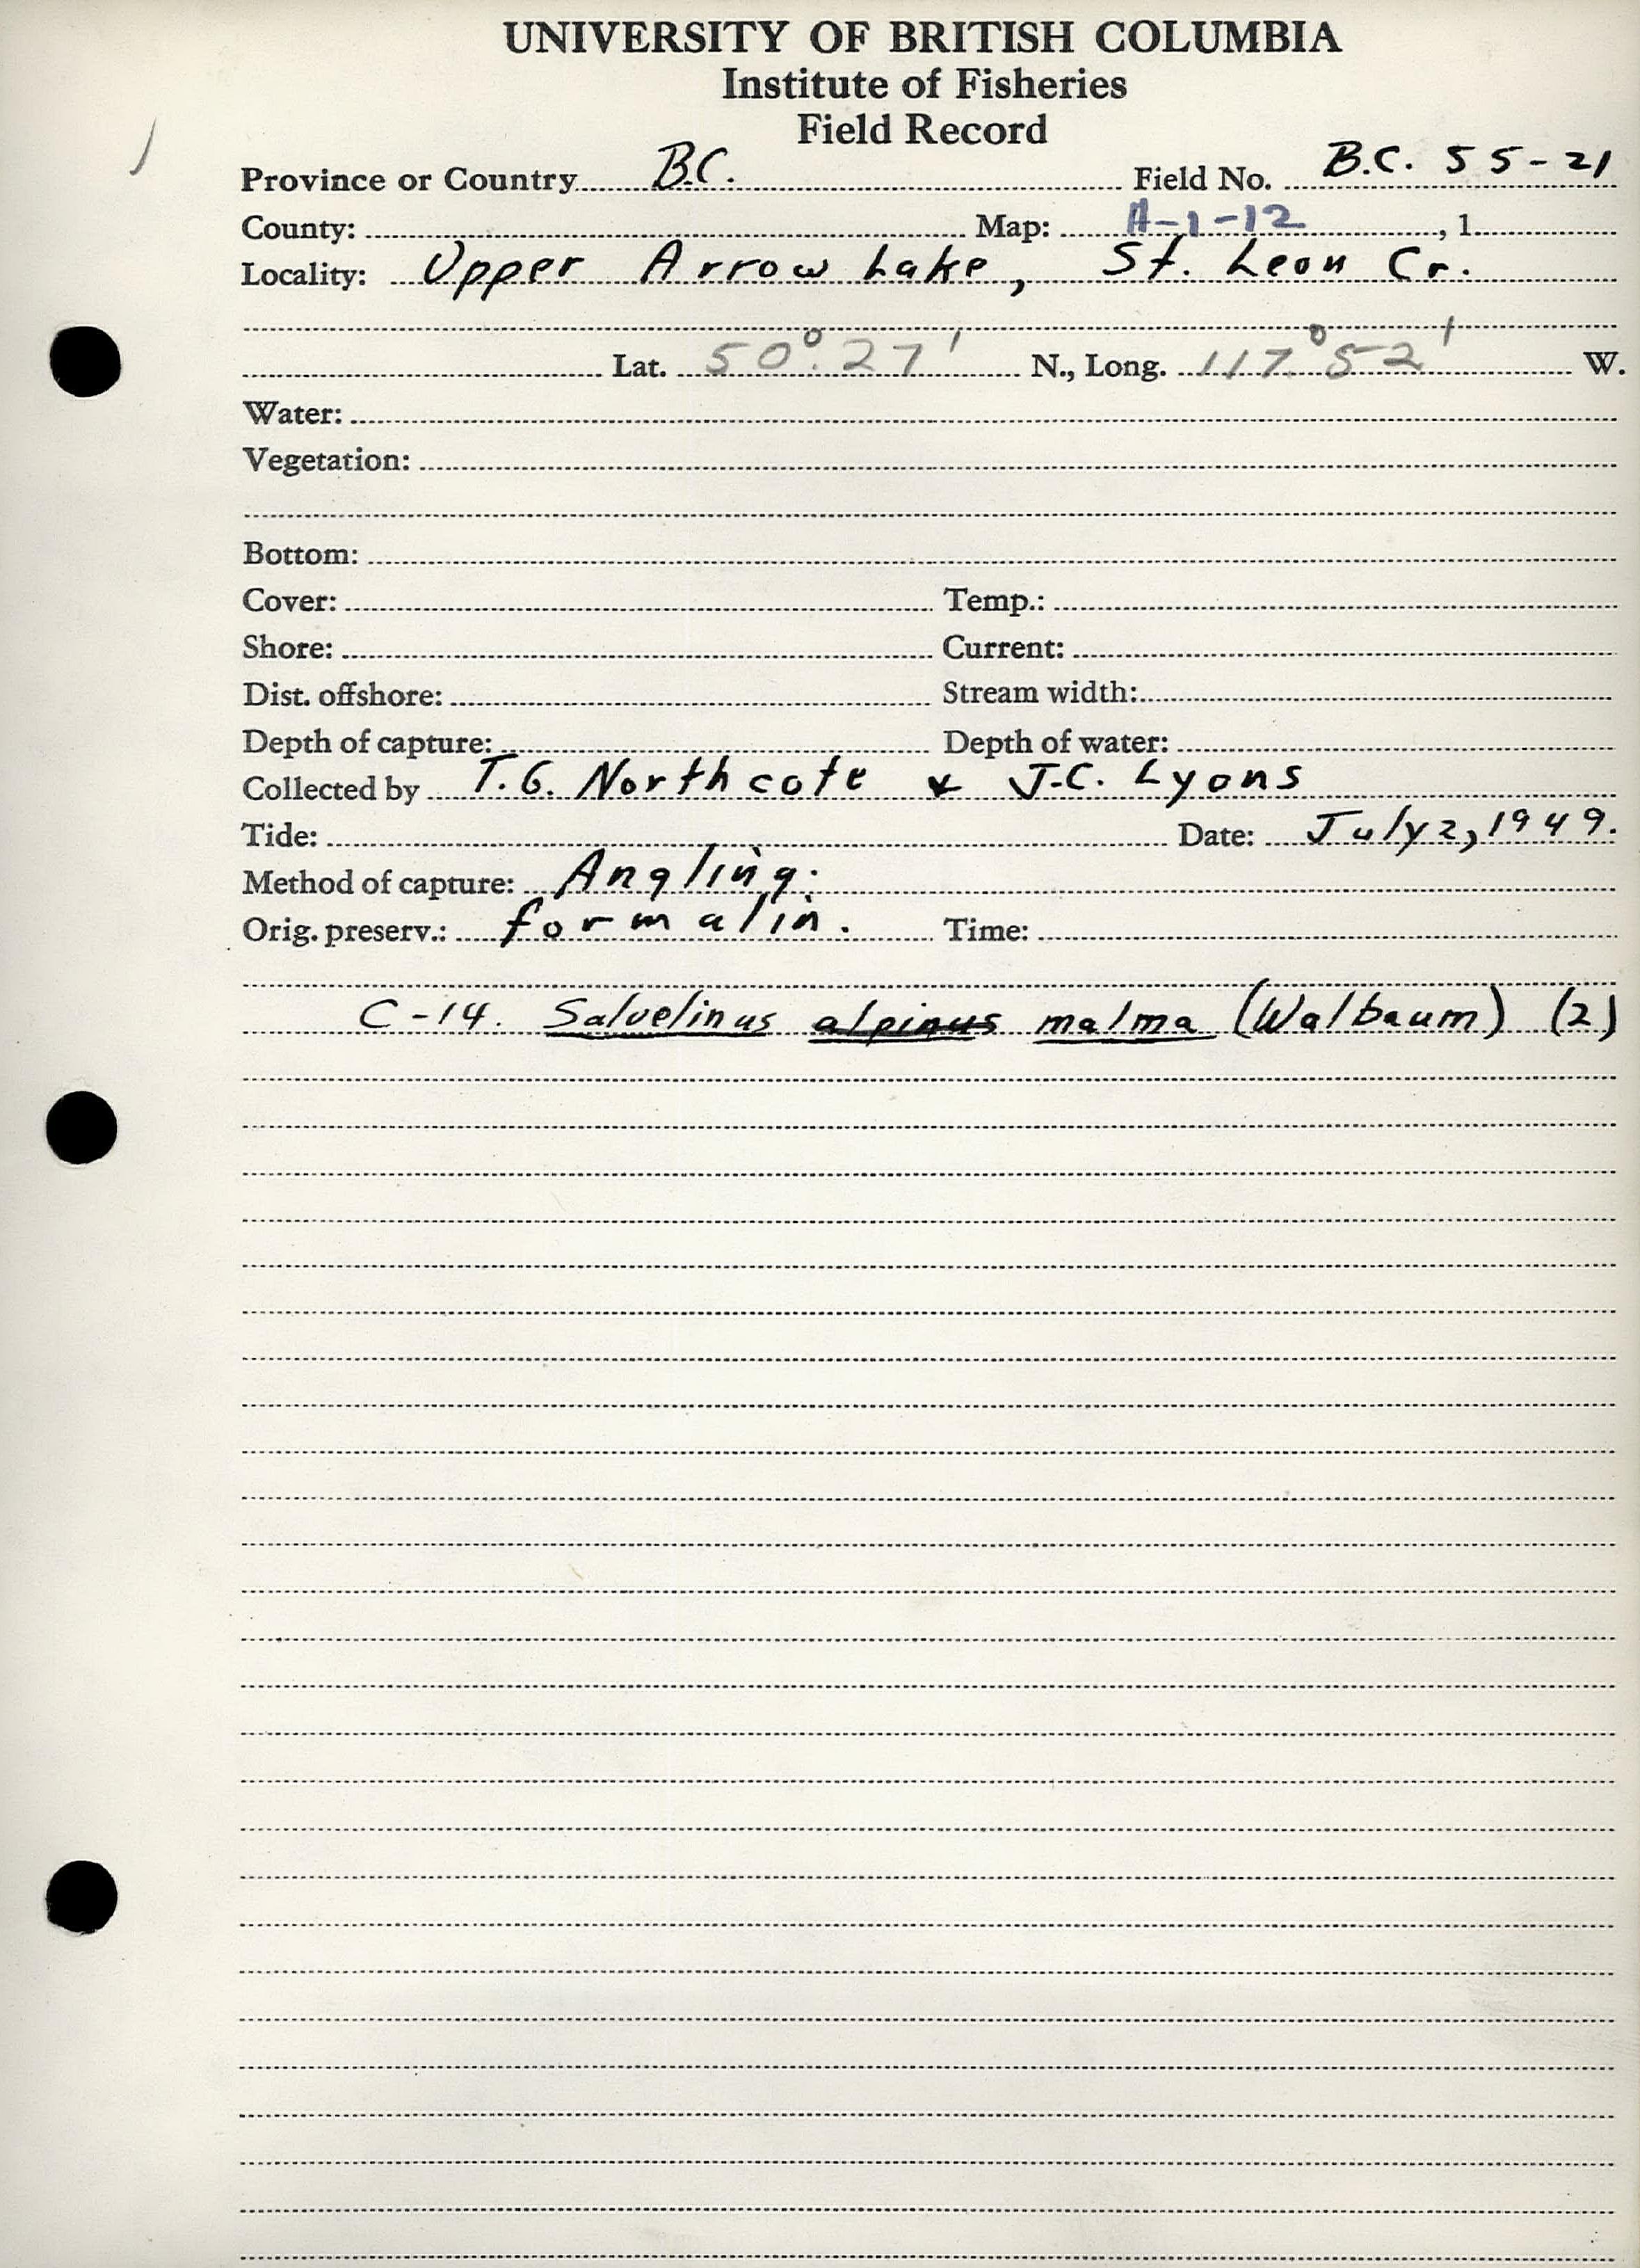 UNIVERSITY OF BRITISH COLUMBIA
Institute of Fisheries
Field Record
Province or Country B.C. Field No. B.C. 55-21
County: Map: A-1-12, 1
Locality: Upper Arrow Lake, St. Leon Cr.
Lat. 50° 27' N., Long. 117° 52' W.
Water:
Vegetation:
Bottom:
Cover: Temp.:
Shore: Current:
Dist. offshore: Stream width:
Depth of capture: Depth of water:
Collected by T.G. Northcote & J.C. Lyons
Tide: Date: July 2, 1949.
Method of capture: Angling.
Orig. preserv.: formalin. Time:
C-14. Salvelinus alpinus malma (Walbaum) (2)